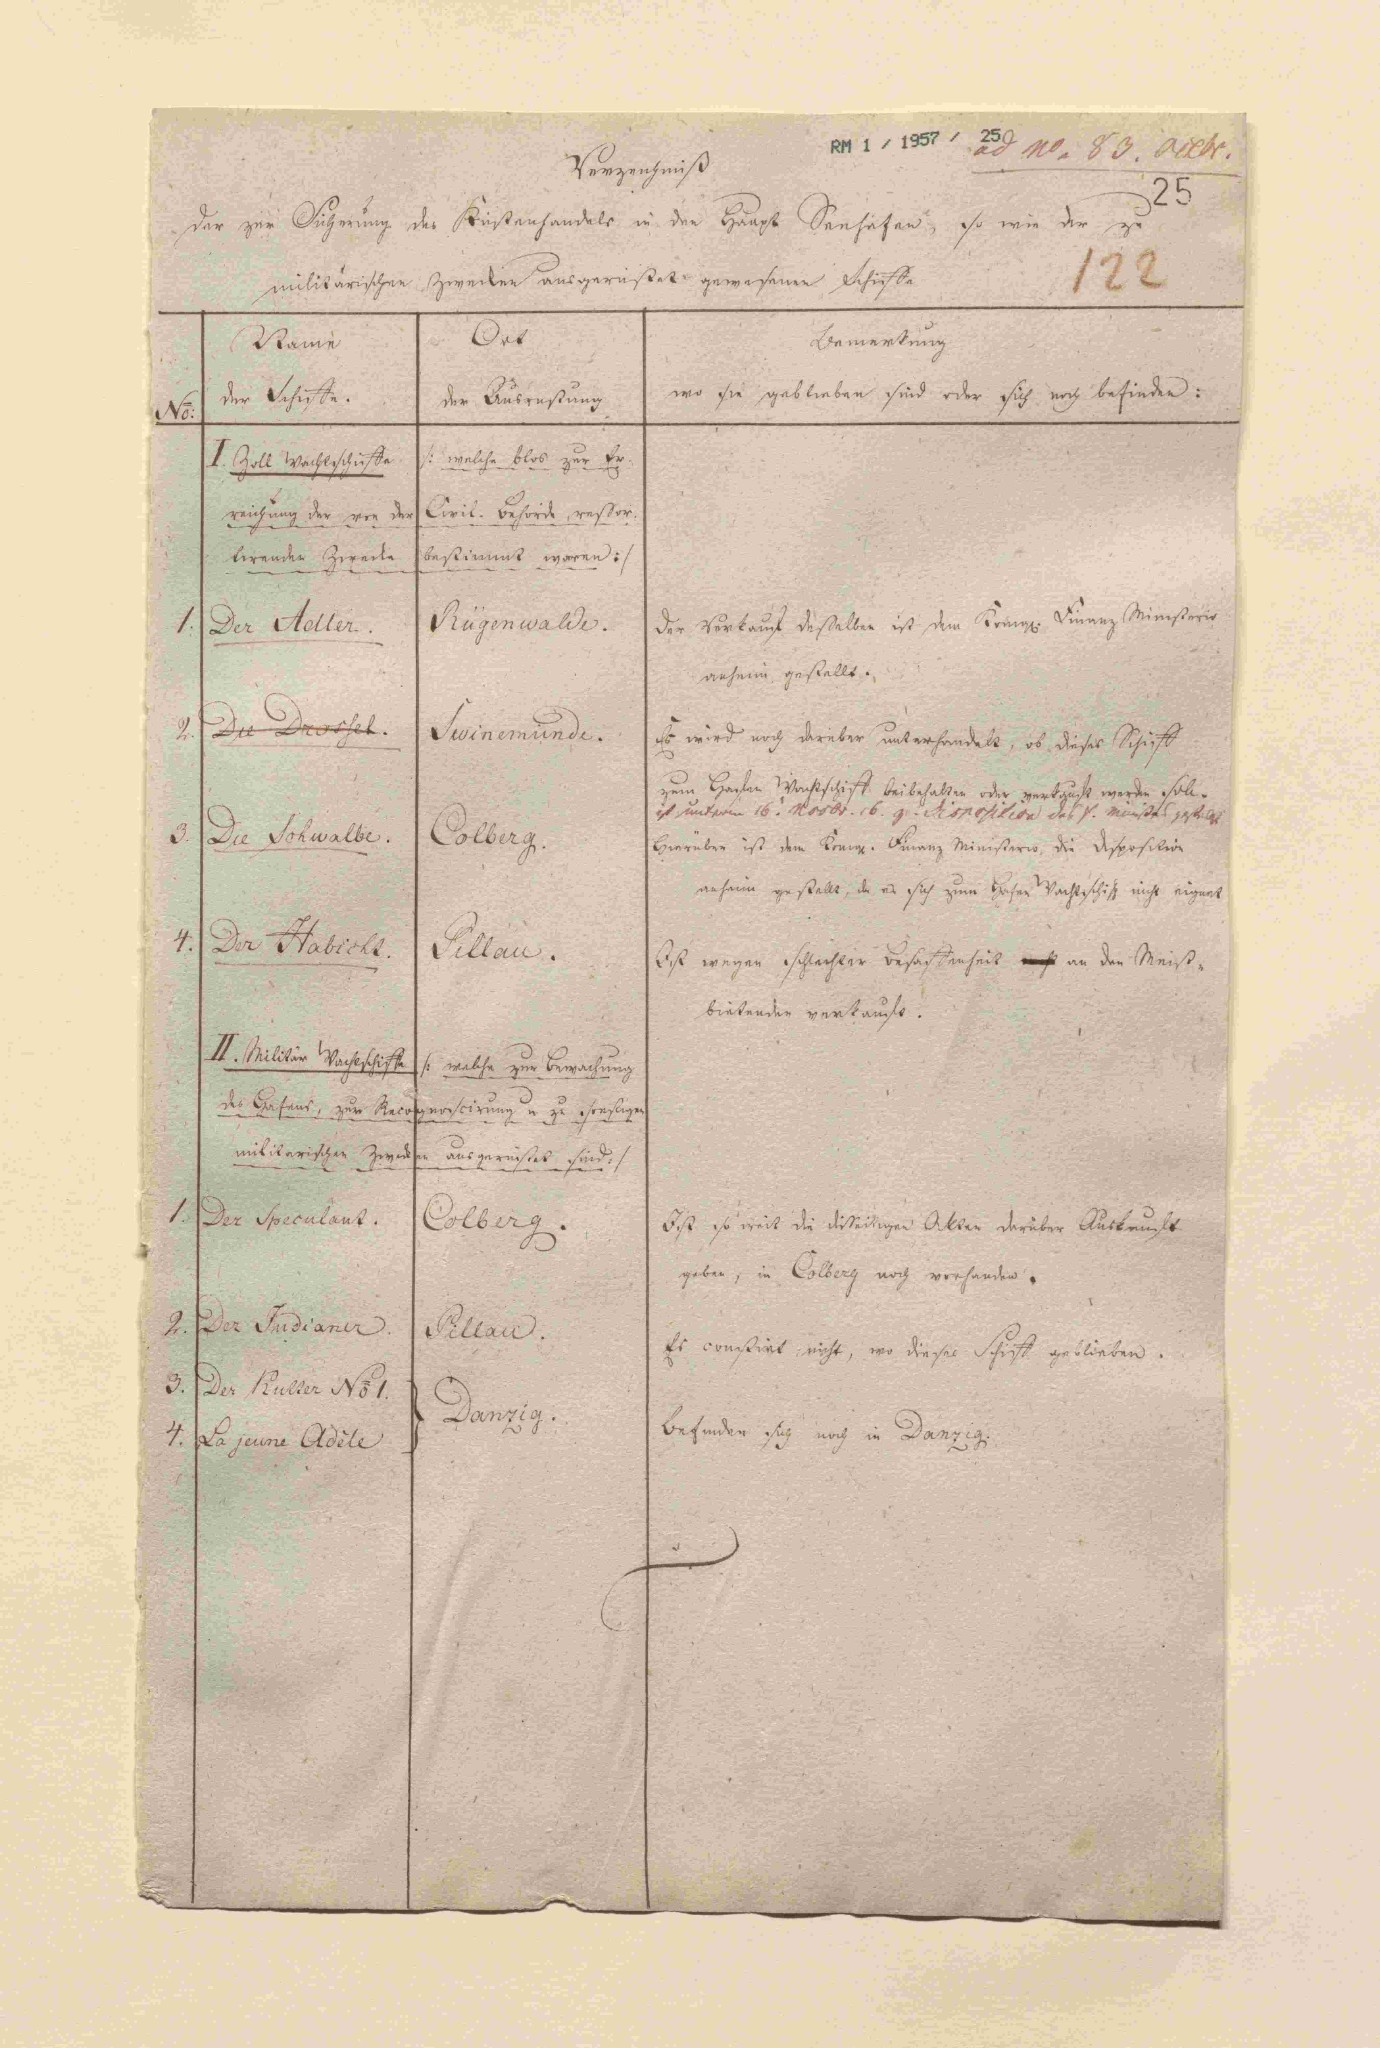 RM 1 / 1957 / 25
ad no. 83. Octbr.
25
Verzeichniß
der zur Sicherung des Küstenhandels in den Haupt Seehäfen, so wie der zu
122
militärischen Zwecken ausgerüstet gewesenen Schiffe
No:
Name
der Schiffe.
Ort
der Ausrüstung
Bemerkung
wo sie geblieben sind oder sich noch befinden:
I. Zoll Wachtschiffe /: welche blos zur Er-
reichung der von der Civil-Behörde ressor-
tirenden Zwecke bestimmt waren :/
1. Der Adler. Rügenwalde. Der Verkauf desselben ist dem Königl. Finanz Ministerio
anheim gestellt.
2. Die Drossel. Swinemünde. Es wird noch darüber unterhandelt, ob dieses Schiff
zum Hafen Wachtschiff beibehalten oder verkauft werden soll.
ist unterm 16. Novbr. 16. z. Disposition des F. Minist. gestellt
3. Die Schwalbe. Colberg. Hierüber ist dem Königl. Finanz Ministerio, die Disposition
anheim gestellt, da es sich zum Hafen Wachtschiff nicht eignet
4. Der Habicht. Pillau. Ist wegen schlechter Beschaffenheit an den Meist-
bietenden verkauft.
II. Militär Wachtschiffe /: welche zur Bewachung
des Hafens, zur Recognoscirung u zu sonstigen
militärischen Zwecken ausgerüstet sind :/
1. Der Speculant. Colberg. Ist so weit die disseitigen Akten darüber Auskunft
geben, in Colberg noch vorhanden.
2. Der Indianer. Pillau. Es constirt nicht, wo dieses Schiff geblieben.
3. Der Kutter No 1.
4. La jeune Adèle
Danzig. Befinden sich noch in Danzig.